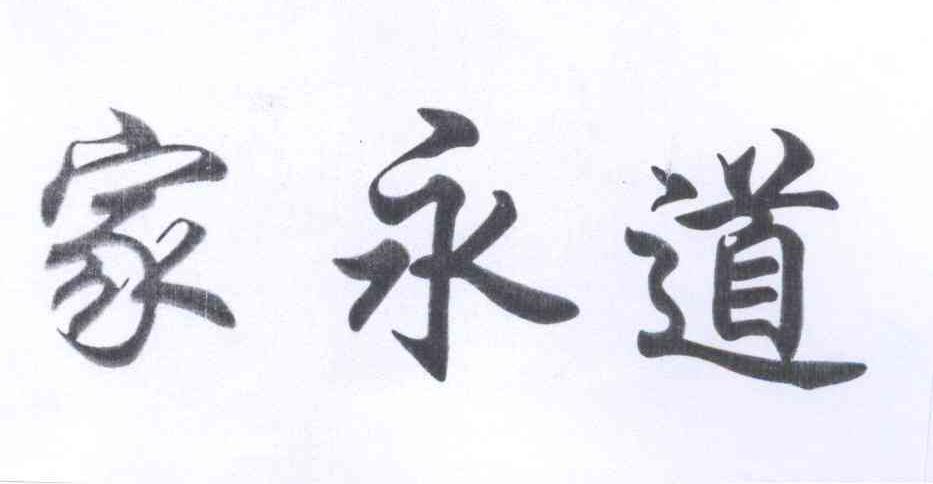 家永道